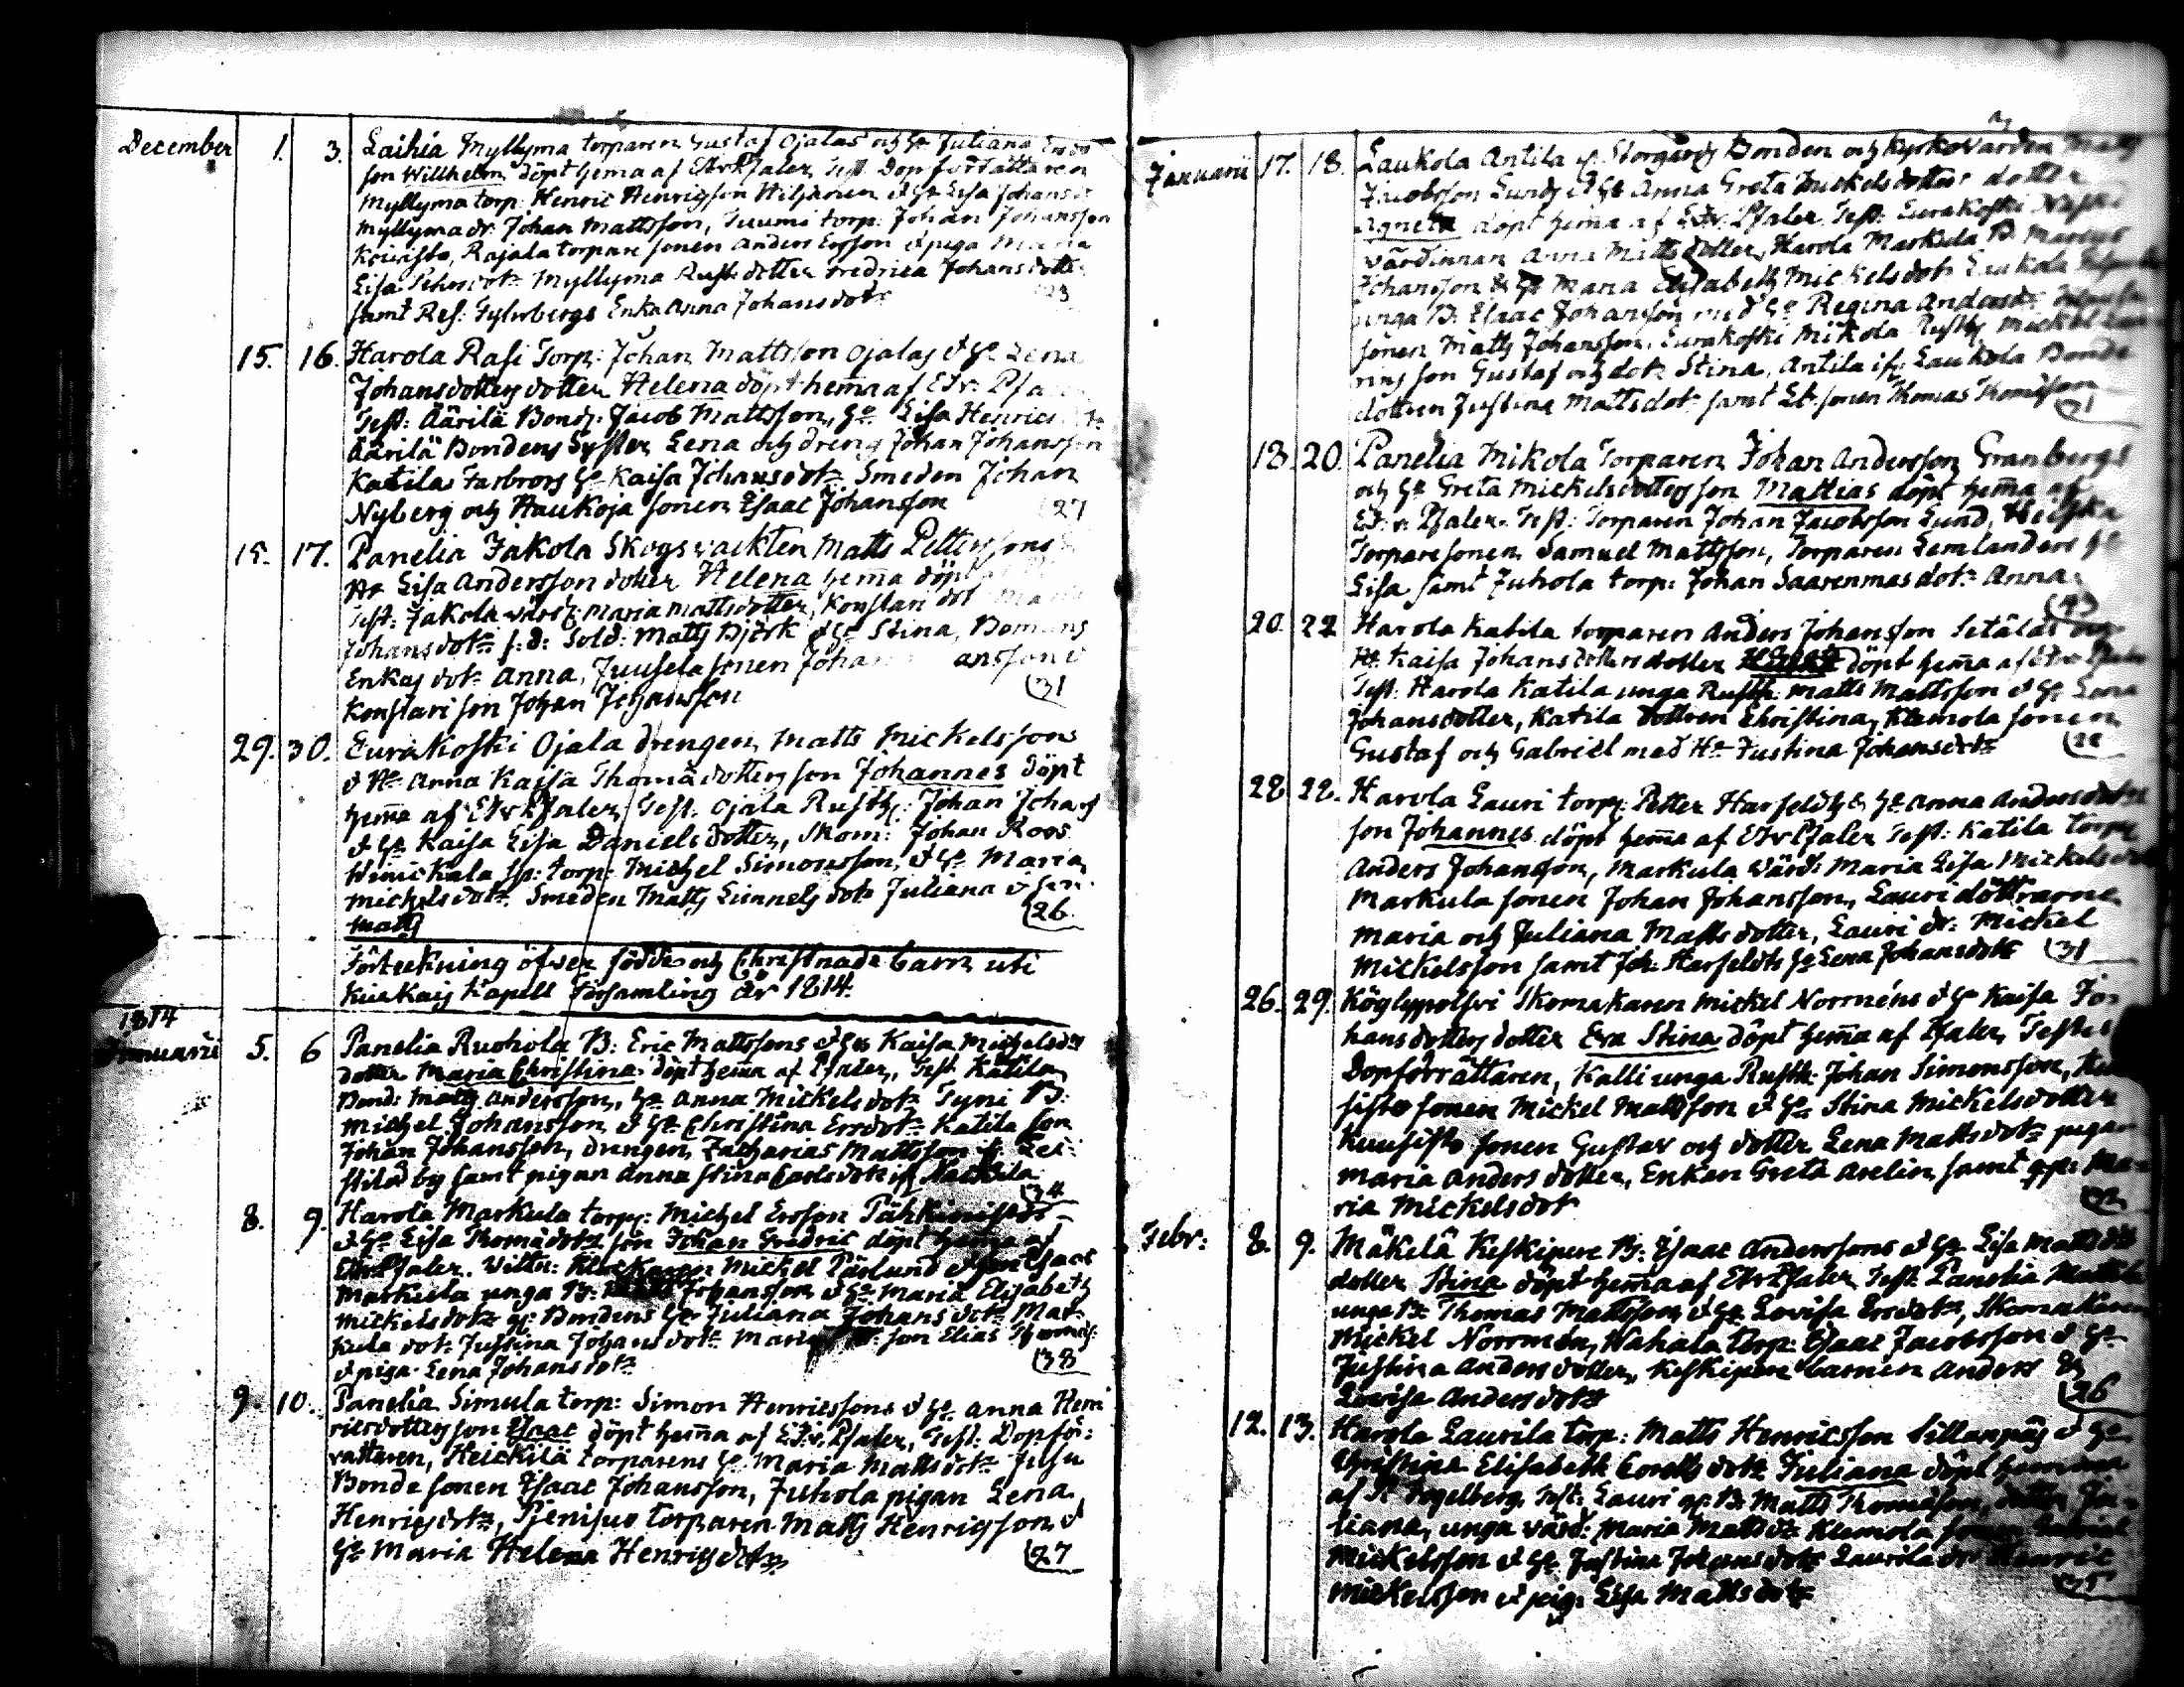 December 1. 3. Laihia Myllyma torparen Gustaf Ojalas och H:s Juliana Ersd:
son Willhelm döpt hema af Etr Psaler, Test. Dopförrättaren
Myllyma torp: Henric Henricsson Hiljanen & H:s Lisa Johansd:
Myllyma dr: Johan Mattsson, Tuumi torp: Johan Johansson
Koivisto, Rajala torpare sonen Anders Ersson & piga Maria
Lisa Myllyma Rusth: dotter Fredrica Johansdotter
samt Ref: Enka Anna Johansdotr
15. 16. Harola Rasi Torp: Johan Mattsson Ojalas & H:s Lena
Johansdotters dotter Helena döpt hema af Etv: Psa
Test: Äärilä Bond: Jacob Mattsson, H:s Lisa Henrics
Äärilä Bondens Syster Lena och dreng Johan Johansson
Katila Farbrors H:s Kaisa Johansdotr Smeden Johan
Nyberg och Haukoja sonen Isaac Johansson 27
15. 17. Panelia Jakola Skogsvackten Matts Pettersons
Ho Lisa Andersson dotter Helena hema döpt
Test: Jakola värd: Maria Mattsdotter, Konstari dot
Johansdotr s:d: Sold: Matts Björk & H:s Stina, Bomans
Enkas dotr Anna, Juusela sonen Johan ansson &
Konstari son Johan Johansson 31
29. 30. Eurakoski Ojala drengen Matts Mickelssons
& Ho Anna Kaisa Thomädotters son Johannes döpt
hema af Etv Psaler, Test: Ojala Rusth: Johan Johans
& H:s Kaisa Lisa Daniels dotter, Skom: Johan Roos
Hinickala sp: torp: Michel Simonsson, & H:s Maria
Michelsdotr Smeden Matts Linnels dotr Juliana & son
Matts 26
Förteckning öfwer födde och Christnade barn uti
Kiukais Kapell Församling år 1814.
1814
Januarii 5. 6 Panelia Ruohola B: Eric Mattssons & H:s Kaisa Michelsdrs
dotter Maria Christina döpt hema af Psaler, Test Katila
Bond: Matts Andersson, H:s Anna Mickelsdotr Tyni B:
Michel Johansson & H:s Christina Ersdotr Katila son
Johan Johansson, drengen Zacharias Mattsson if:
stilä by samt pigan Anna Stina Carlsdotr if 34
8. 9. Harola Markula torp: Michel Ersson
& H:s Lisa Thomädotrs son Johan Fredric döpt hema af
Etv Psaler. Wittn: Klockaren Mickel Pärlund & son Isaac
Markula unga B: Johansson & H:s Maria Elisabeth
Mickelsdotr g: Bondens H:s Juliana Johansdotr Mar-
kula dotr Justina Johansdotr son Elias Thomas:
& piga Lena Johansdotr 38
9. 10. Panelia Simula torp: Simon Henricssons & H:s Anna Hen
ricsdotters son Isaac döpt hema af Etv. Psaler, Test: Dopför:
rättaren, Heickilä torparens H:s Maria Mattsdotr Jusu
Bonde sonen Isaac Johansson, Juhola pigan Lena
Henricsdotr, torparen Matts Henricsson &
H:s Maria Helena Henricsdotr 27
Januarii 17. 18. Laukola Antila if Storgårds Bonden och Kyrkovärden Matts
Jacobsson Lunds & H:s Anna Greta Mickelsdotters dotter
Agneta döpt hema af Etv. Psaler Test: Eurakoski
värdinnan Anna Mattsdotter, Harola Markula B. Marcus
Johansson & H:s Maria Elisabeth Mickelsdotr Laukola
unga B. Isaac Johansson med H:s Regina Andersd:
sonen Matts Johansson, Eurakoski Mikola Rusth: Mickel
rins son Gustaf och dotr Stina, Antila if: Laukola Bonde
dottren Justina Mattsdotr samt sonen Thomas Thomäson
31
18. 20. Panelia Mikola Torparen Johan Andersson Granbergs
och H:s Greta Mickelsdotters son Mattias döpt hema af
Et v. Psaler. Test: Torparen Johan Jacobsson Lund,
Torparesonen Samuel Mattsson, Torparen Semlanders H:s
Lisa samt Juhola torp: Johan Saarenmas dotr Anna.
43
20. 22 Harola Katila torparen Anders Johansson Setälas och
Ho Kaisa Johansdotters dotter döpt hema af Etv Psaler
Test: Harola Katila unga Rusth: Matts Mattsson & H:s Lena
Johansdotter, Katila dottren Christina, Klemola sonen
Gustaf och Gabriel med Ho Justina Johansdotr
22 22. Harola Lauri torp: Petter Harfeldts & H:s Anna Andersdotrs
son Johannes döpt hema af Etv Psaler Test: Katila torp:
Anders Johansson, Markula värd: Maria Lisa Mickelsdotr
Markula sonen Johan Johansson, Lauri döttrarne
Maria och Juliana Mattsdotter, Lauri dr: Mickel
Mickelsson samt Joh: Harfeldts H:s Lena Johansdotr 31
26. 29. Köylypolvi Skomakaren Mickel Norrméns & H:s Kaisa Jo-
hansdotters dotter Eva Stina döpt hema af Psaler, Testes
Dopförrättaren, Kalli unga Rusth: Johan Simonsson,
sisto sonen Mickel Mattsson & H:s Stina Mickelsdotter
Kuusisto sonen Gustav och dotter Lena Mattsdotr pigan
Maria Andersdotter, Enkan Greta Arelin samt gp: Ma-
ria Mickelsdotr
Febr: 8. 9. Mäkelä Keskipere B: Isaac Anderssons & H:s Lisa Mattsdr
dotter Stina döpt hema af Etv Psaler Test Panelia Mattila
unga B: Thomas Mattsson & H:s Lovisa Ersdotr, Skomakaren
Mickel Norrmén, Wahala torp: Isaac Jacobsson & H:s
Justina Andersdotter, Keskipere barnen Anders &
Lovisa Andersdotr 26
12. 13. Harola Laurila torp: Matts Henricsson Sillanpääs & H:s
Christina Elisabeth dotr Juliana döpt hemma
af Fogelberg. Test: Lauri gp: B: Matts Thomasson, dotter Ju-
liana, unga värd: Maria Mattsdr Klemola sonen Gabriel
Mickelsson & H:s Justina Johansdotr Laurila dr Henric
Mickelsson & pig: Lisa Mattsdotr 35